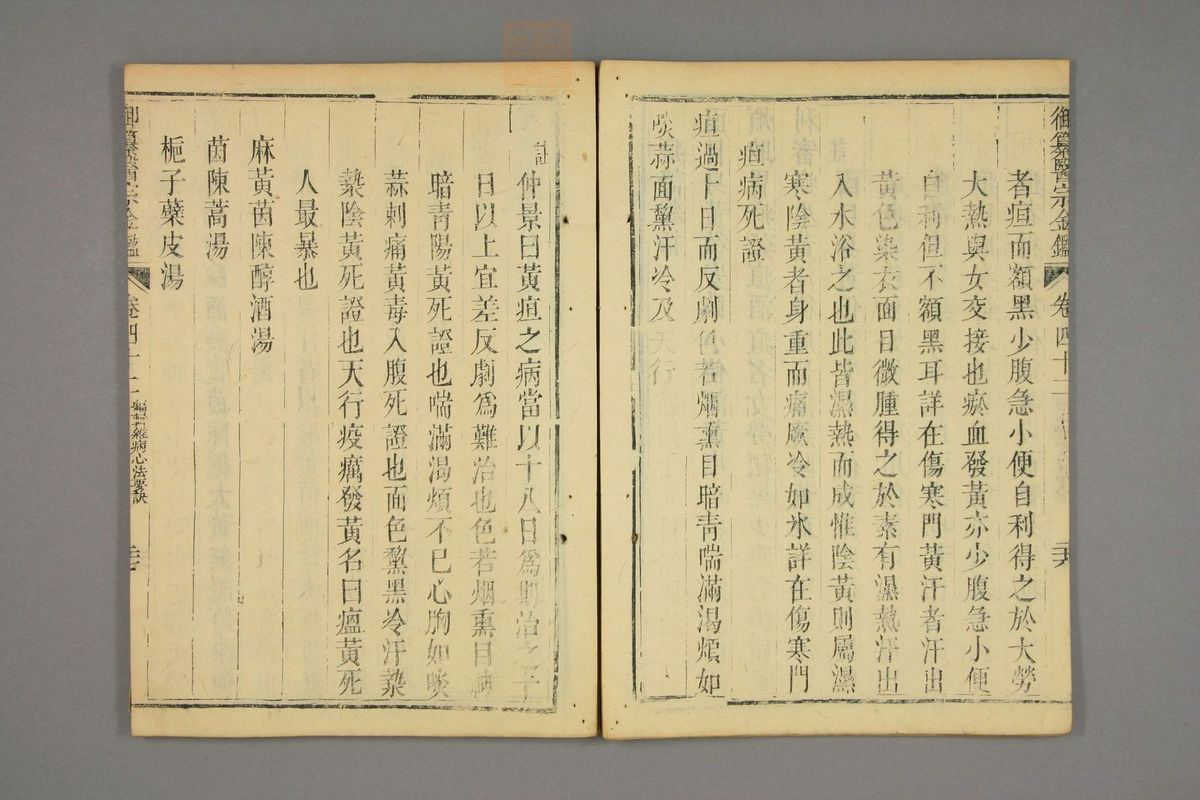 御纂醫宗金鑑 卷四十二
者疸而額黑少腹急小便自利得之於大勞
大熱與女交接也瘀血發黃亦少腹急小便
自利但不額黑耳詳在傷寒門黃汗者汗出
黃色染衣面目微腫得之於素有濕熱汗出
入水浴之也此皆濕熱而成惟陰黃則屬濕
寒陰黃者身重而痛厥冷如氷詳在傷寒門
疸病死證
疸過十日而反劇色若烟熏目暗青喘滿渴煩如
啖蒜面黧汗冷及天行
註 仲景曰黃疸之病當以十八日為期治之十
日以上宜差反劇為難治也色若烟熏目神
暗青陽黃死證也喘滿渴煩不已心胸如啖
蒜刺痛黃毒入腹死證也面色黧黑冷汗漐
漐陰黃死證也天行疫癘發黃名曰瘟黃死
人最暴也
麻黃茵陳醇酒湯
茵陳蒿湯
梔子蘗皮湯
御纂醫宗金鑑 卷四十二 編輯雜病心法要訣